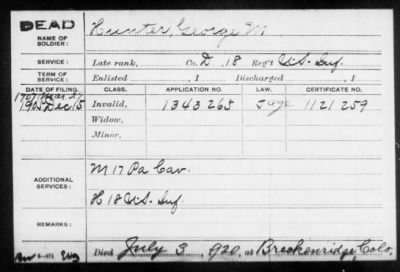 DEAD
NAME OF SOLDIER: Hunter, George M
SERVICE: Late rank, Co. D, 18 Reg't U.S. Inf.
TERM OF SERVICE: Enlisted , 1 Discharged , 1
DATE OF FILING. CLASS. APPLICATION NO. LAW. CERTIFICATE NO.
1905 Dec 15 Invalid, 1343265 1121259
Widow,
Minor,
ADDITIONAL SERVICES: M 17 Pa Cav.
H 18 U.S. Inf.
REMARKS:
Died July 3, 1920, at Breckenridge, Colo.